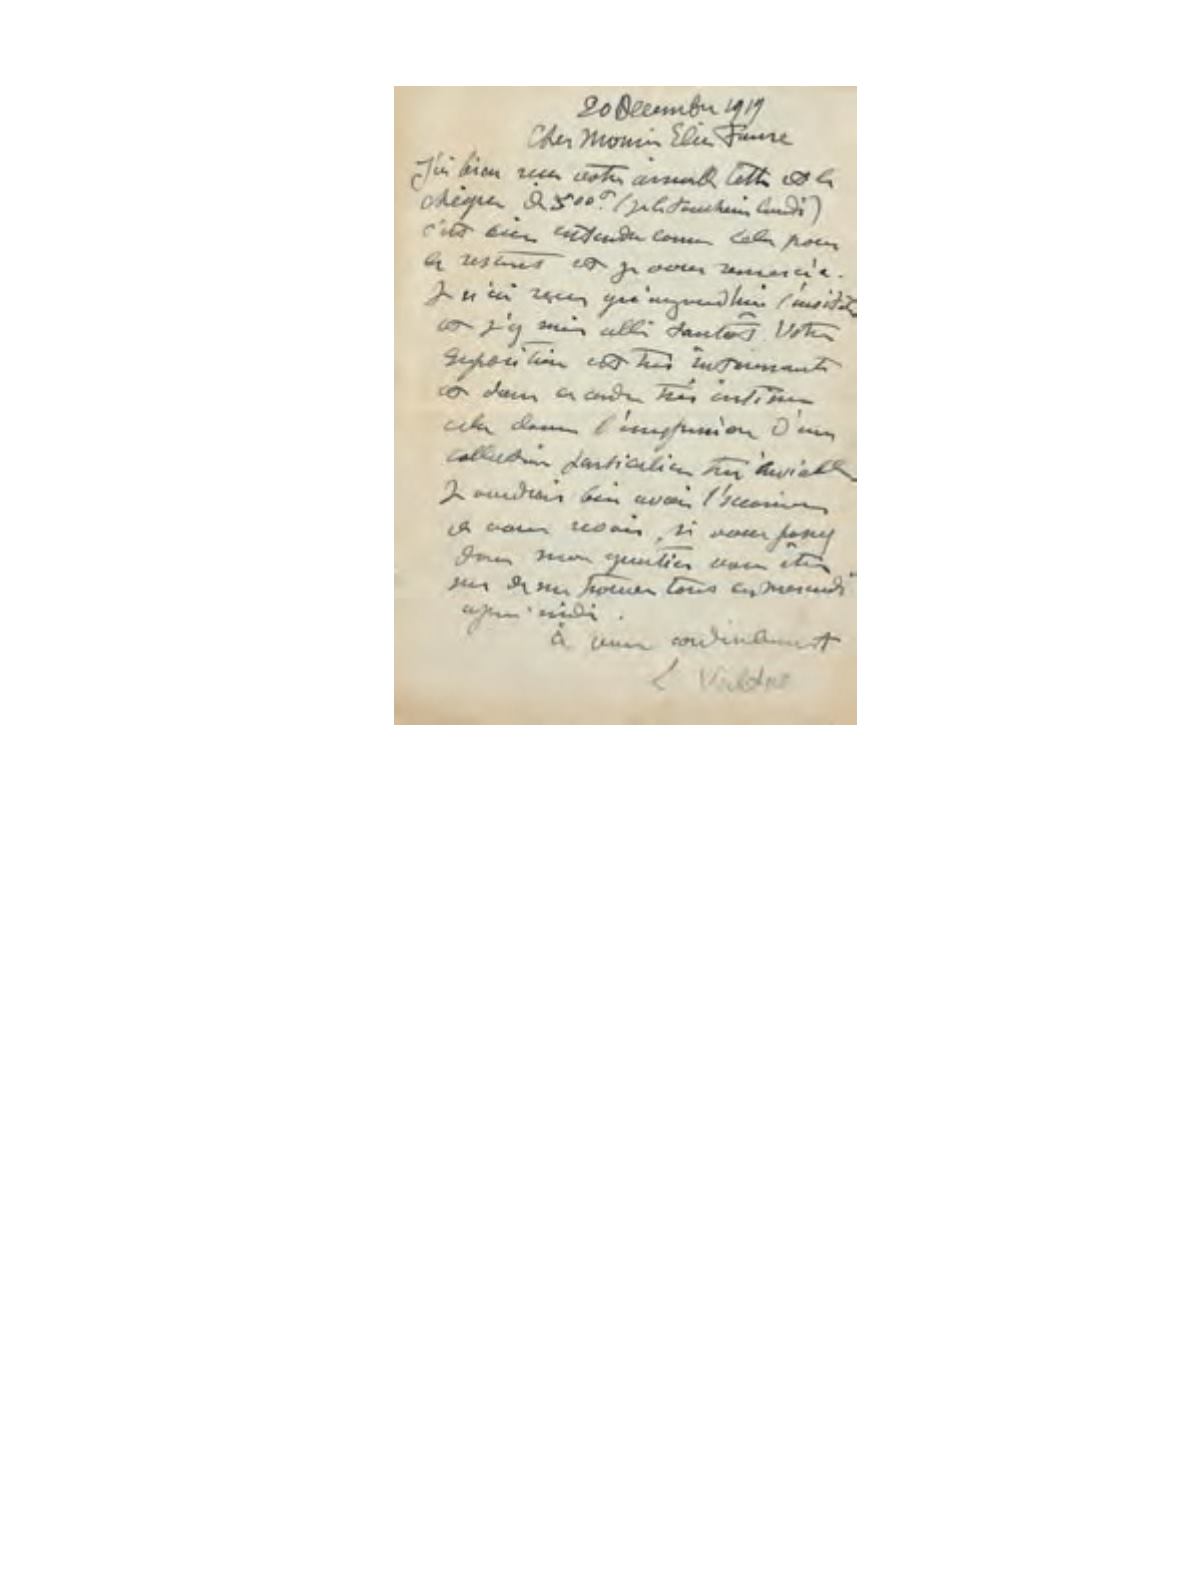 20 Decembre 1919
Cher Monsieur Elie Faure
J'ai bien reçu votre aimable lettre et le
chèque de 500f (je le toucherai lundi)
c'est bien entendu comme cela pour
le restant et je vous remercie.
Je n'ai reçu qu'aujourd'hui l'invitation
et j'y suis allé tantôt. Votre
exposition est très intéressante
et dans ce cadre très intime
cela donne l'impression d'une
collection particulière très enviable
Je voudrais bien avoir l'occasion
de vous revoir, si vous passez
dans mon quartier vous êtes
sur de me trouver tous les mercredi
après midi.
à vous cordialement
L Valtat